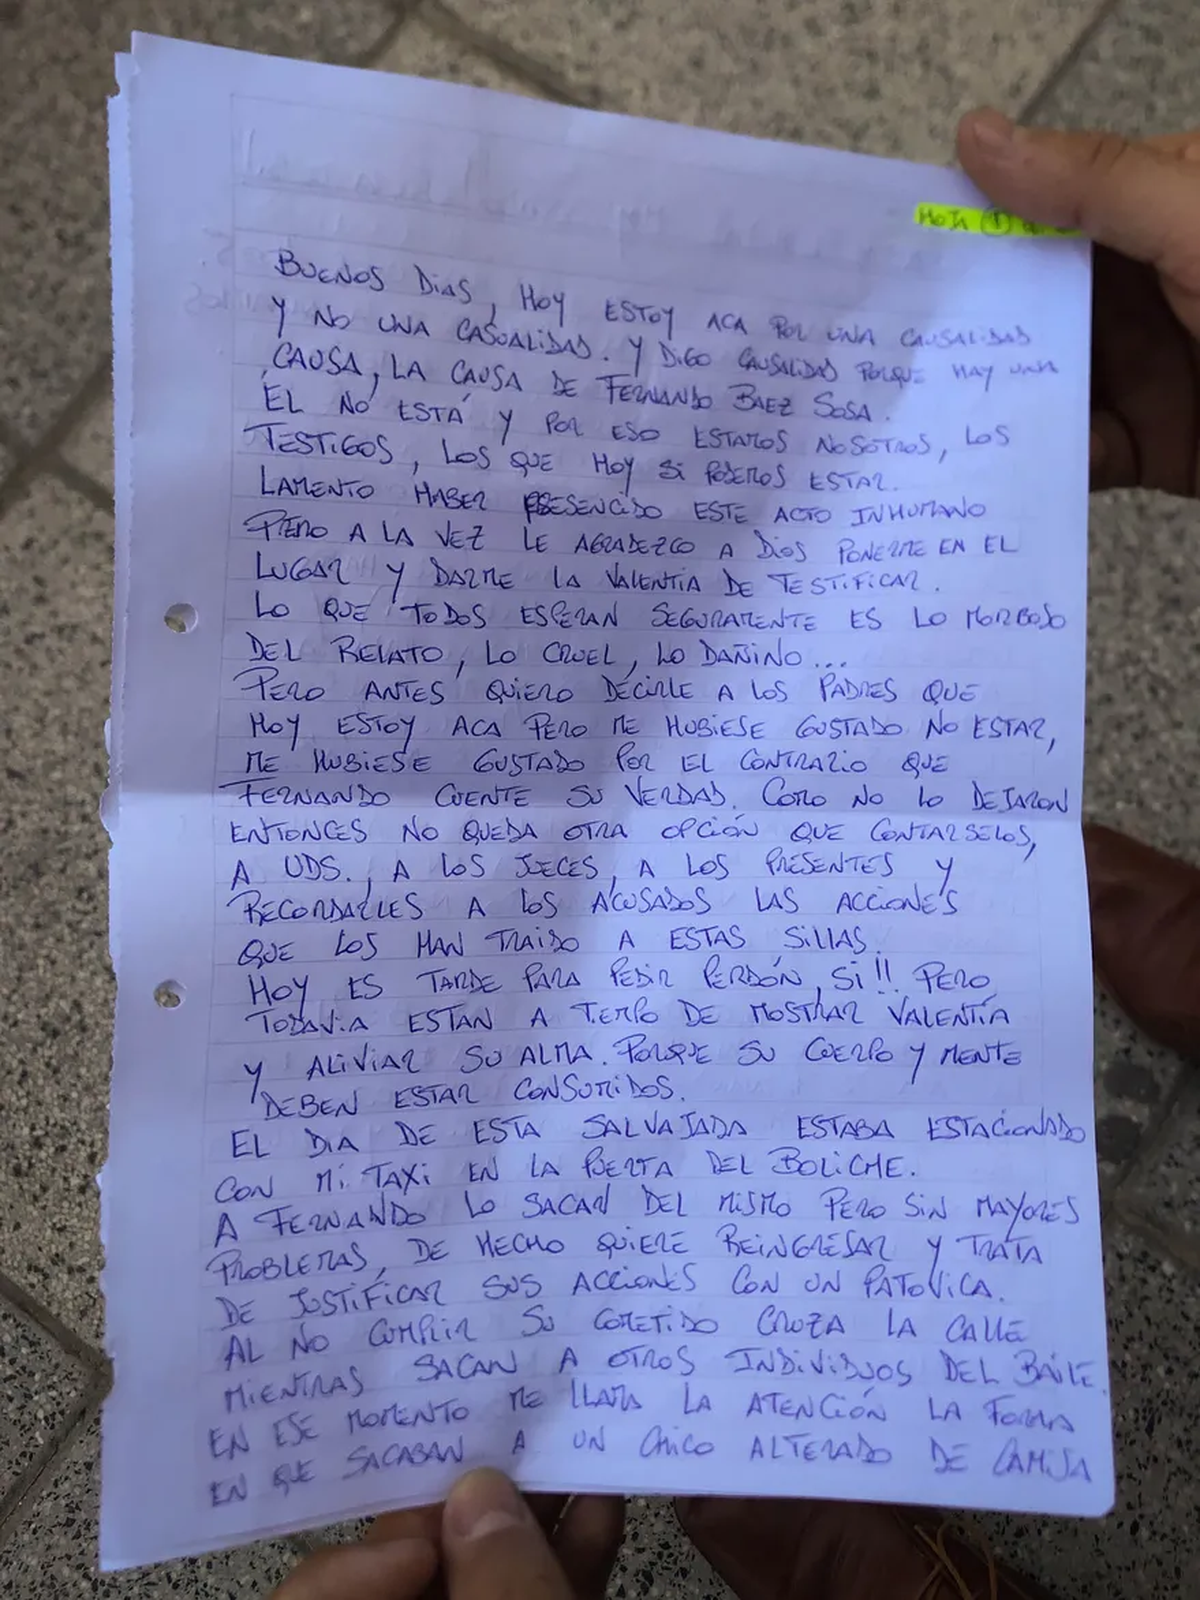 HOJA 1
BUENOS DIAS, HOY ESTOY ACA POR UNA CAUSALIDAD
Y NO UNA CASUALIDAD. Y DIGO CAUSALIDAD PORQUE HAY UNA
CAUSA, LA CAUSA DE FERNANDO BAEZ SOSA.
EL NO ESTÁ Y POR ESO ESTAMOS NOSOTROS, LOS
TESTIGOS, LOS QUE HOY SI PODEMOS ESTAR.
LAMENTO HABER PRESENCIDO ESTE ACTO INHUMANO
PERO A LA VEZ LE AGRADEZCO A DIOS PONERME EN EL
LUGAR Y DARME LA VALENTIA DE TESTIFICAR.
LO QUE TODOS ESPERAN SEGURAMENTE ES LO MORBOSO
DEL RELATO, LO CRUEL, LO DAÑINO...
PERO ANTES QUIERO DECIRLE A LOS PADRES QUE
HOY ESTOY ACA PERO ME HUBIESE GUSTADO NO ESTAR,
ME HUBIESE GUSTADO POR EL CONTRARIO QUE
FERNANDO CUENTE SU VERDAD. COMO NO LO DEJARON
ENTONCES NO QUEDA OTRA OPCIÓN QUE CONTARSELOS,
A UDS., A LOS JUECES, A LOS PRESENTES Y
RECORDARLES A LOS ACUSADOS LAS ACCIONES
QUE LOS HAN TRAIDO A ESTAS SILLAS.
HOY ES TARDE PARA PEDIR PERDÓN, SI!! PERO
TODAVIA ESTAN A TIEMPO DE MOSTRAR VALENTÍA
Y ALIVIAR SU ALMA. PORQUE SU CUERPO Y MENTE
DEBEN ESTAR CONSUMIDOS.
EL DIA DE ESTA SALVAJADA ESTABA ESTACIONADO
CON MI TAXI EN LA PUERTA DEL BOLICHE.
A FERNANDO LO SACAN DEL MISMO PERO SIN MAYORES
PROBLEMAS, DE HECHO QUIERE REINGRESAR Y TRATA
DE JUSTIFICAR SUS ACCIONES CON UN PATOVICA.
AL NO CUMPLIR SU COMETIDO CRUZA LA CALLE
MIENTRAS SACAN A OTROS INDIVIDUOS DEL BAILE.
EN ESE MOMENTO ME LLAMA LA ATENCIÓN LA FORMA
EN QUE SACABAN A UN CHICO ALTERADO DE CAMISA